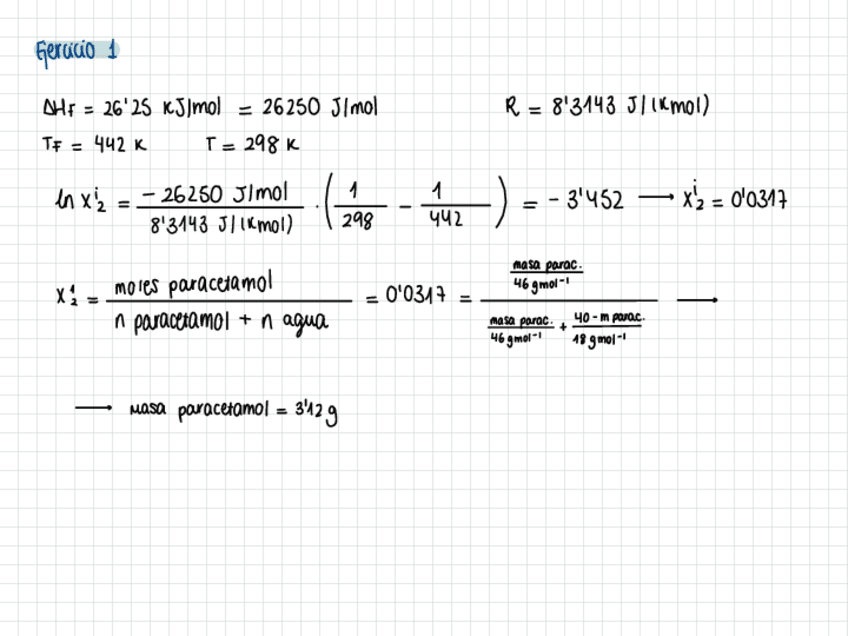 Ejercicio 1
ΔHf = 26'25 KJ/mol = 26250 J/mol R = 8'3143 J/(Kmol)
TF = 442 K T = 298 K
ln x₂ⁱ = - 26250 J/mol / 8'3143 J/(Kmol) · (1/298 - 1/442) = - 3'452 → x₂ⁱ = 0'0317
x₂ⁱ = moles paracetamol / n paracetamol + n agua = 0'0317 = masa parac. / 46 gmol⁻¹ / masa parac. / 46 gmol⁻¹ + 40 - m parac. / 18 gmol⁻¹ →
→ masa paracetamol = 3'12 g